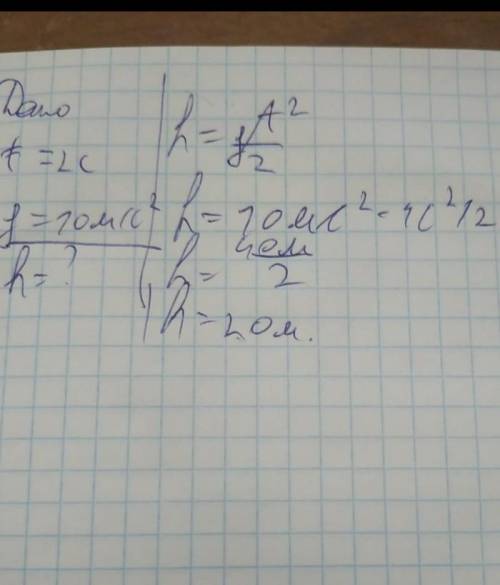 Дано
t = 2с
g = 10м/с²
h = ?
h = gt²/2
h = 10м/с² · 4с²/2
h = 40м/2
h = 20м.